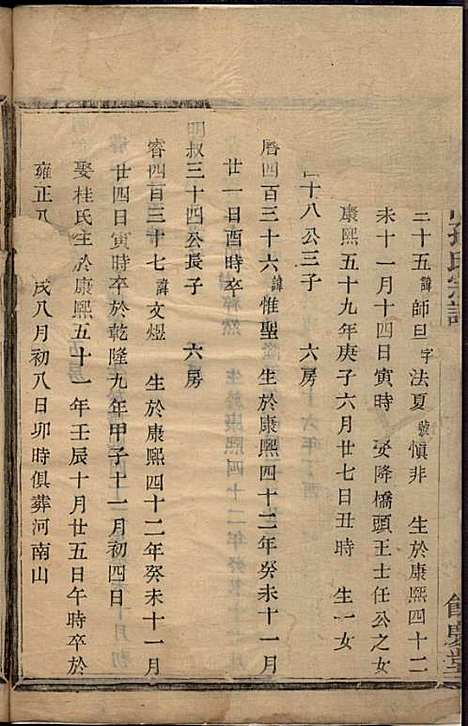 氏宗譜
餘慶堂
二十五諱師旦字法夏號慎非 生於康熙四十二
未十一月十四日寅時 娶降橋頭王士任公之女
康熙五十九年庚子六月廿七日丑時 生一女
十八公三子 六房
曆四百三十六諱惟聖 生於康熙四十二年癸未十一月
廿一日酉時卒
明叔三十四公長子 六房
睿四百三十七諱文煜 生於康熙四十二年癸未十一月
廿四日寅時卒於乾隆九年甲子十一月初四日
娶桂氏生於康熙五十一年壬辰十月廿五日午時卒於
雍正八 戌八月初八日卯時俱葬河南山